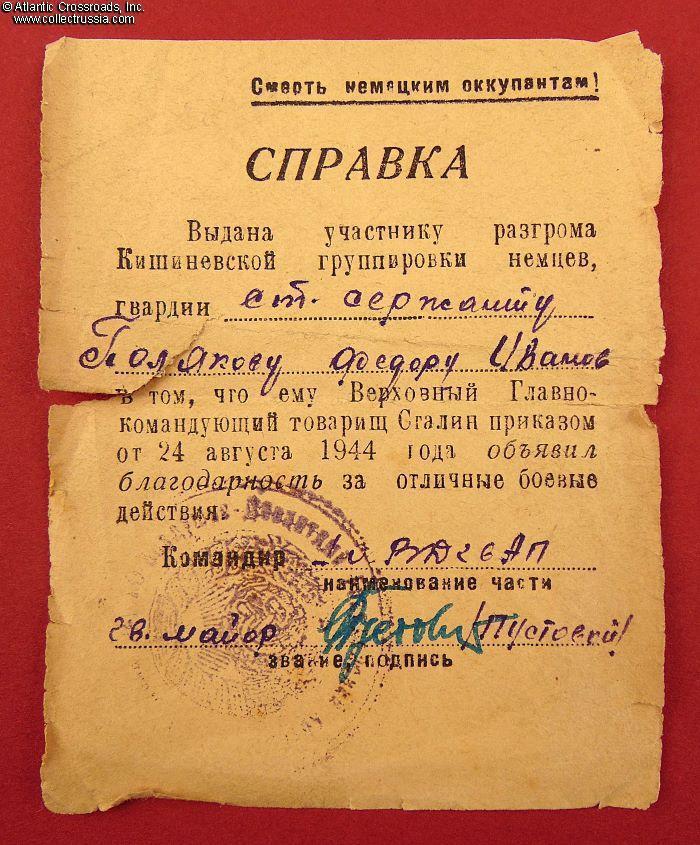 © Atlantic Crossroads, Inc.
www.collectrussia.com
Смерть немецким оккупантам!
СПРАВКА
Выдана участнику разгрома
Кишиневской группировки немцев,
гвардии ст. сержанту
Полякову Федору Иванов
в том, что ему Верховный Главно-
командующий товарищ Сталин приказом
от 24 августа 1944 года объявил
благодарность за отличные боевые
действия.
Командир
наименование части
гв. майор /Пустовой/
звание, подпись